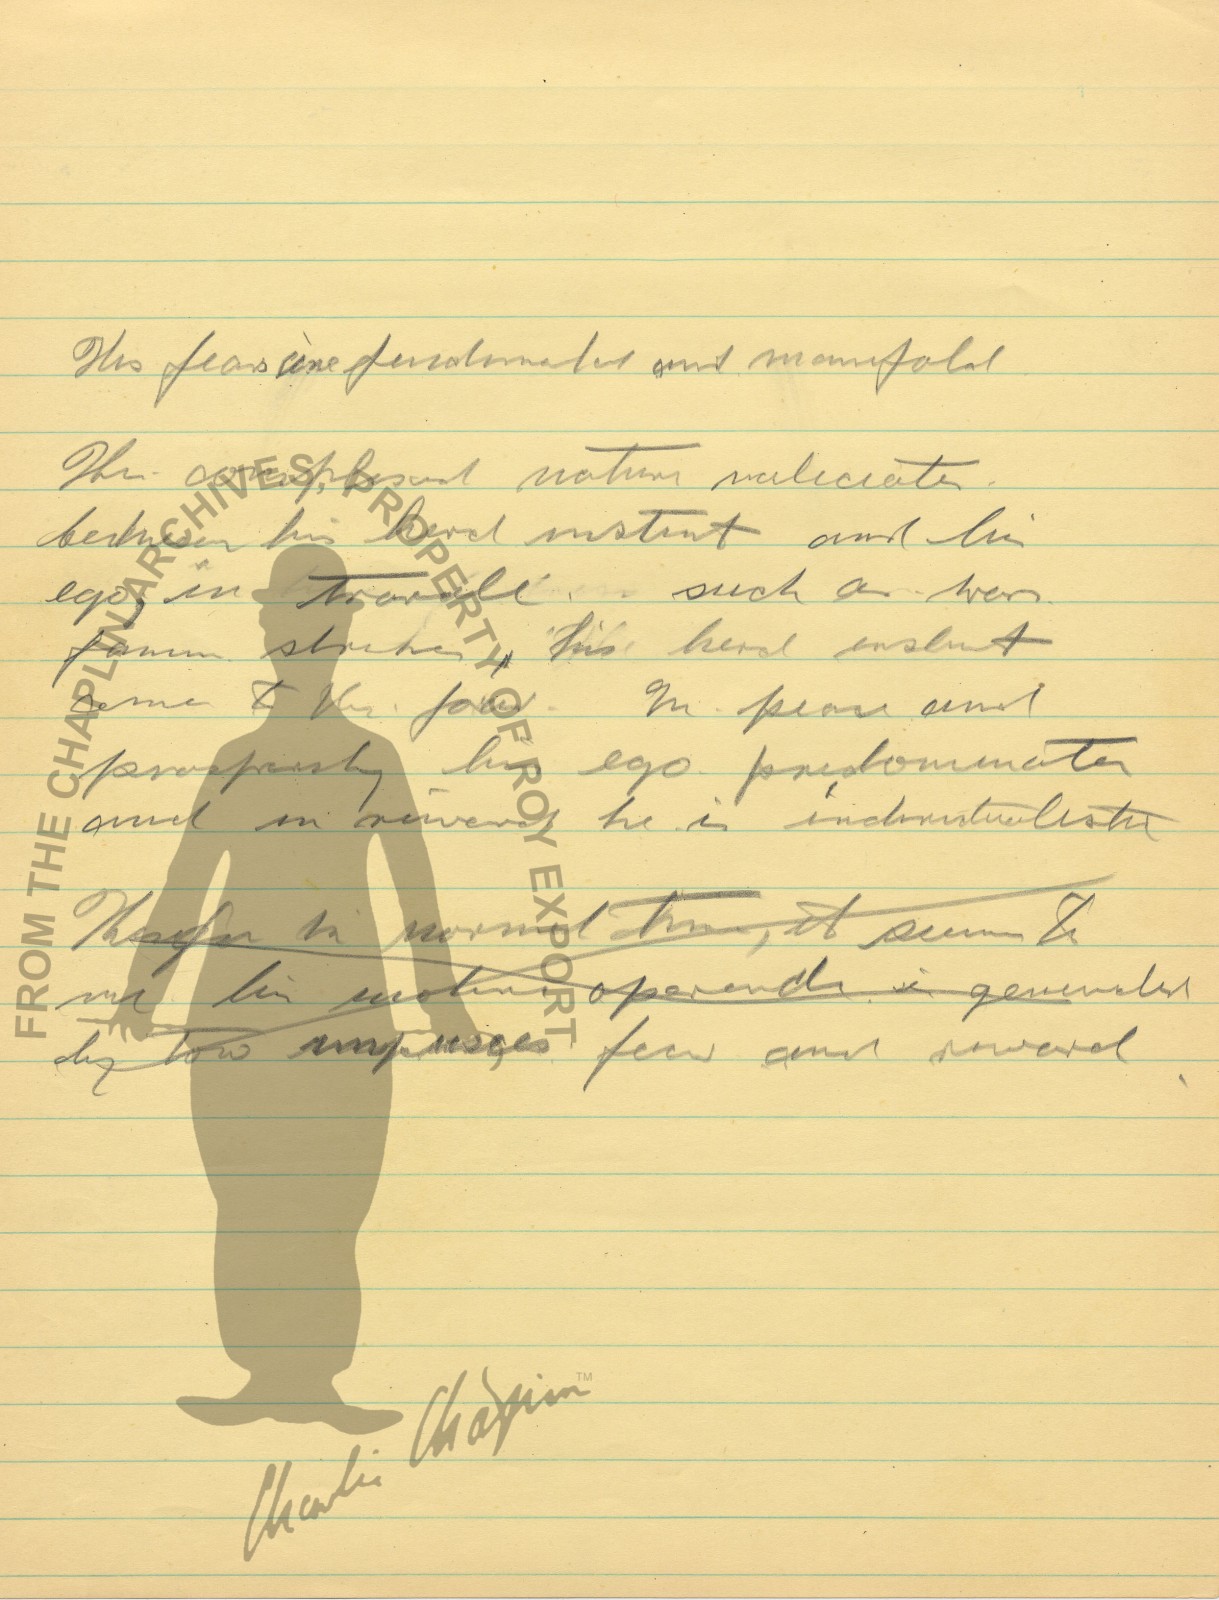 His fears are fundamental and manifold
The complexed nature
between his herd instinct and his
ego, in travail such as war
famin strikes, this herd instinct
come to the fore. In peace and
prosperity his ego predominates
and in reward he is individualistic
Therefor in normal time, it seems to
me his modus operandi is generated
by tow impulses fear and reward
FROM THE CHAPLIN ARCHIVES, PROPERTY OF ROY EXPORT
Charlie Chaplin TM